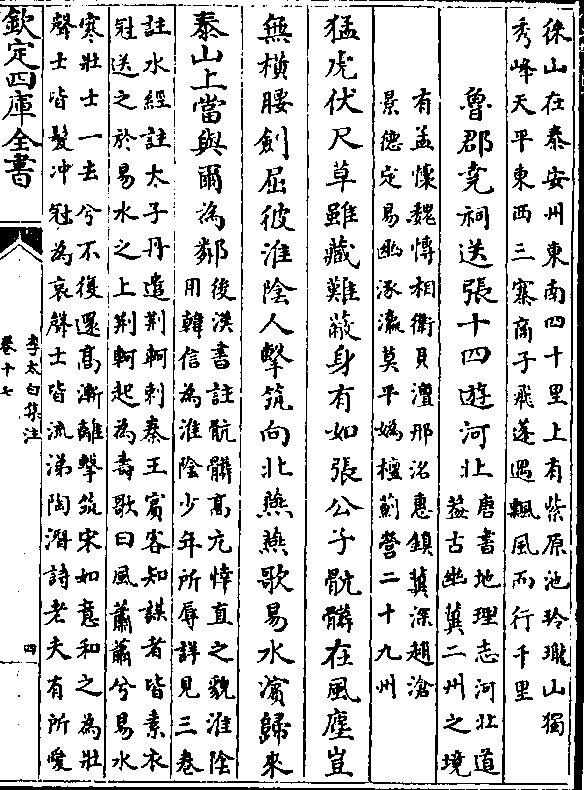 徠山在泰安州東南四十里上有紫原池玲瓏山獨
秀峰天平東西三寨商子飛蓬遇飄風而行千里
魯郡堯祠送張十四遊河北
唐書地理志河北道
葢古幽冀二州之境
有孟懷魏博相衛貝澶邢洺惠鎮冀深趙滄
景德定易幽涿瀛莫平媯檀薊營二十九州
猛虎伏尺草雖藏難蔽身有如張公子骯髒在風塵豈
無橫腰劍屈彼淮陰人擊筑向北燕燕歌易水濱歸來
泰山上當與爾為鄰
後漢書註骯髒高亢婞直之貌淮陰
用韓信為淮陰少年所辱詳見三卷
註水經註太子丹遣荆軻刺秦王賓客知謀者皆素衣
冠送之於易水之上荆軻起為壽歌曰風蕭蕭兮易水
寒壯士一去兮不復還高漸離擊筑宋如意和之為壯
聲士皆髮冲冠為哀聲士皆流涕陶潛詩老夫有所愛
欽定四庫全書
李太白集注
卷十七
四